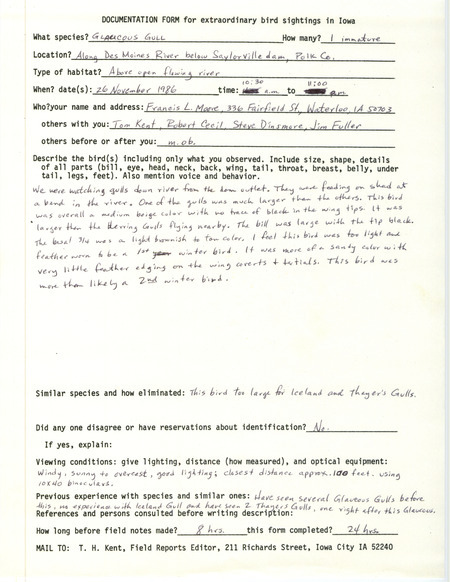 DOCUMENTATION FORM for extraordinary bird sightings in Iowa
What species? GLAUCOUS GULL How many? 1 immature
Location? Along Des Moines River below Saylorville dam, Polk Co.
Type of habitat? Above open flowing river
10:30 11:00
When? date(s): 26 November 1986 time: a.m. to a.m.
Who?your name and address: Francis L. Moore, 336 Fairfield St, Waterloo, IA 50703
others with you: Tom Kent, Robert Cecil, Steve Dinsmore, Jim Fuller
others before or after you: m.ob.
Describe the bird(s) including only what you observed. Include size, shape, details
of all parts (bill, eye, head, neck, back, wing, tail, throat, breast, belly, under
tail, legs, feet). Also mention voice and behavior.
We were watching gulls down river from the dam outlet. They were feeding on shad at
a bend in the river. One of the gulls was much larger than the others. This bird
was overall a medium beige color with no trace of black in the wing tips. It was
larger than the Herring Gulls flying nearby. The bill was large with the tip black.
The basal 3/4 was a light brownish to tan color. I feel this bird was too light and
feather worn to be a 1st winter bird. It was more of a sandy color with
very little feather edging on the wing coverts + tertials. This bird was
more than likely a 2nd winter bird.
Similar species and how eliminated: This bird too large for Iceland and Thayer's Gulls.
Did any one disagree or have reservations about identification? No.
If yes, explain:
Viewing conditions: give lighting, distance (how measured), and optical equipment:
Windy, sunny to overcast, good lighting; closest distance approx. 100 feet. using
10x40 binoculars.
Previous experience with species and similar ones: Have seen several Glaucous Gulls before
this, no experience with Iceland Gull and have seen 2 Thayer's Gulls, one right after this Glaucous.
References and persons consulted before writing description:
How long before field notes made? 8 hrs. this form completed? 24 hrs.
MAIL TO: T. H. Kent, Field Reports Editor, 211 Richards Street, Iowa City IA 52240